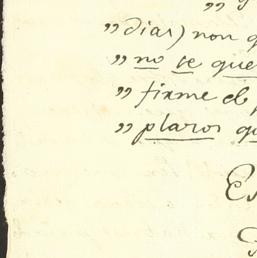 „
„dias) non q
„ no se que
„ firme el
„ plaros qu
Es